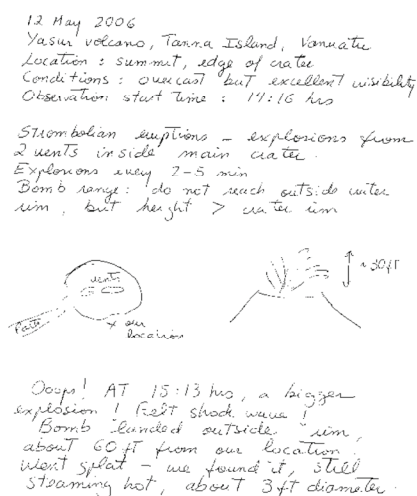 12 May 2006
Yasur volcano, Tanna Island, Vanuatu
Location : summit, edge of crater
Conditions : overcast but excellent visibility
Observation start time : 14:16 hrs
Strombolian eruptions – explosions from
2 vents inside main crater.
Explosions every 2-5 min
Bomb range : do not reach outside crater
rim, but height > crater rim
vents
Path
our
location
~ 30 ft
Ooops! AT 15:13 hrs, a bigger
explosion ! Felt shock wave !
Bomb landed outside rim,
about 60 ft from our location.
Went splat – we found it, still
steaming hot, about 3 ft diameter.